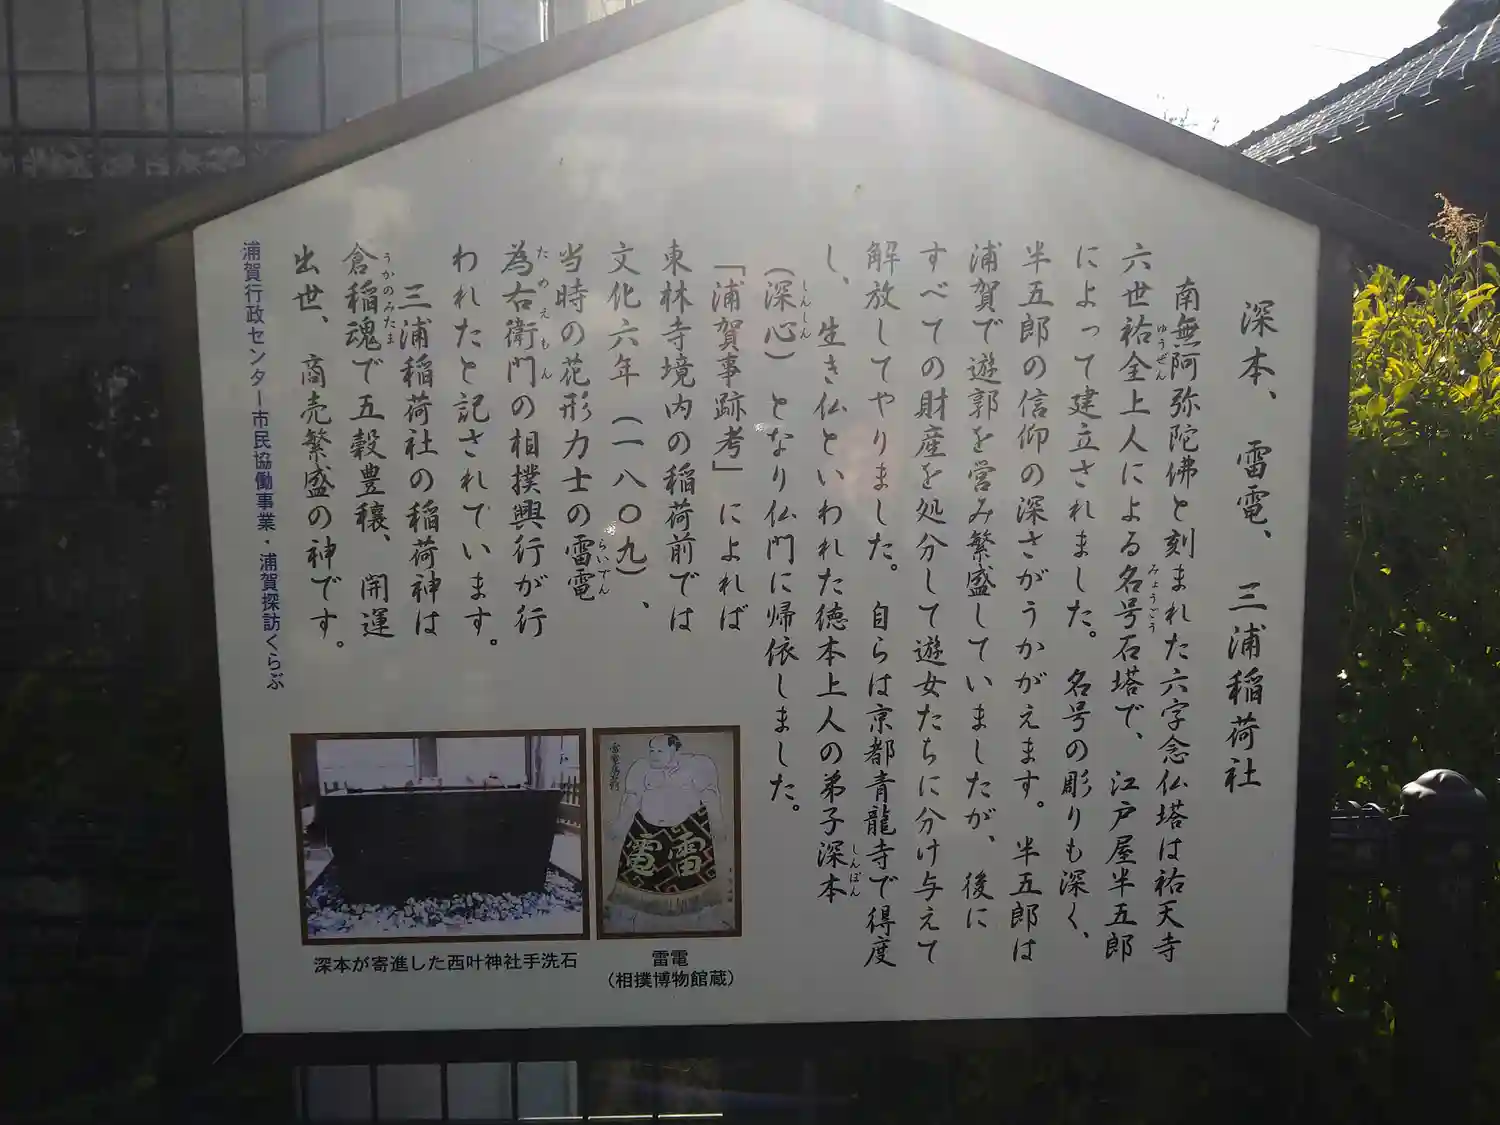 深本、雷電、三浦稲荷社
南無阿弥陀佛と刻まれた六字念仏塔は祐天寺
六世祐全上人による名号石塔で、江戸屋半五郎
によって建立されました。名号の彫りも深く、
半五郎の信仰の深さがうかがえます。半五郎は
浦賀で遊郭を営み繁盛していましたが、後に
すべての財産を処分して遊女たちに分け与えて
解放してやりました。自らは京都青龍寺で得度
し、生き仏といわれた徳本上人の弟子深本
(深心)となり仏門に帰依しました。
「浦賀事跡考」によれば
東林寺境内の稲荷前では
文化六年(一八〇九)、
当時の花形力士の雷電
為右衛門の相撲興行が行
われたと記されています。
三浦稲荷社の稲荷神は
倉稲魂で五穀豊穣、開運
出世、商売繁盛の神です。
浦賀行政センター市民協働事業・浦賀探訪くらぶ
ゆうぜん
みょうごう
しんぽん
しんしん
らいでん
ためえもん
うかのみたま
雷電
深本が寄進した西叶神社手洗石
雷電
(相撲博物館蔵)